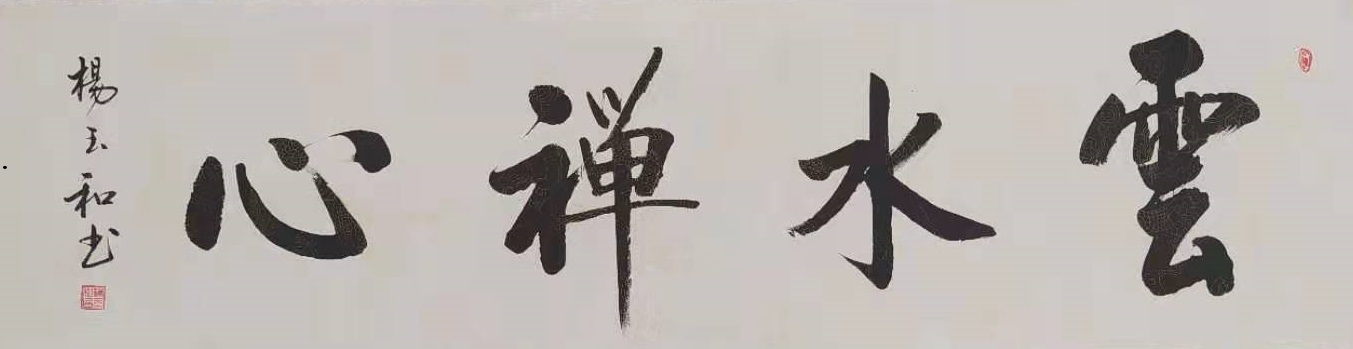 雲水禅心
楊玉和书